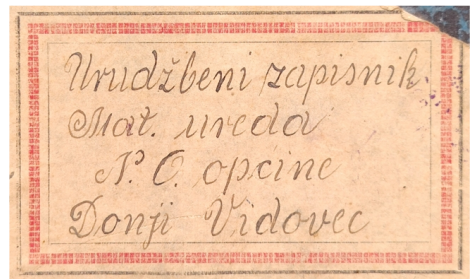 Urudžbeni zapisnik.
Mat. ureda
N. O. opcine
Donji Vidovec